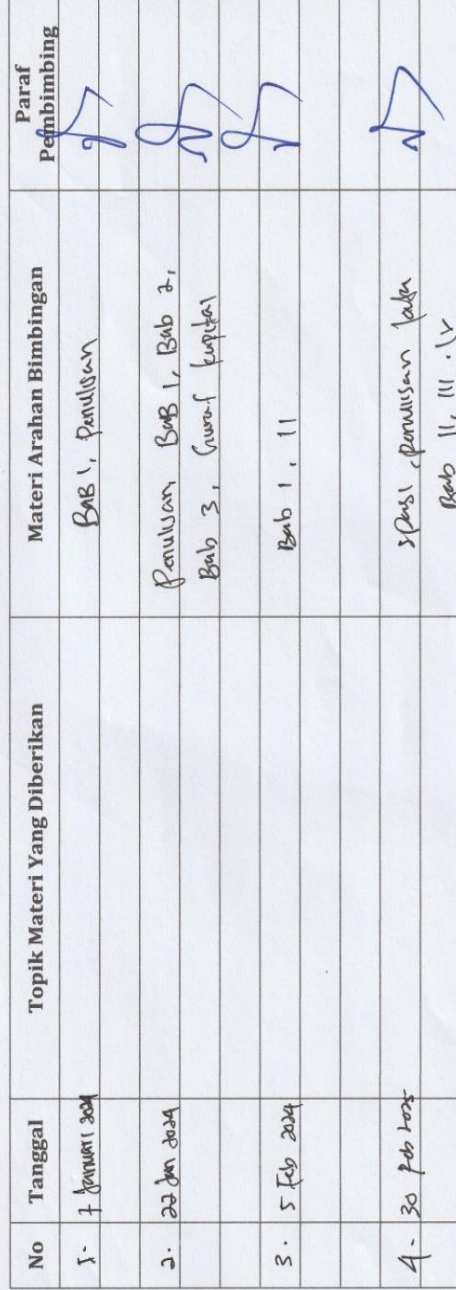 No Tanggal Topik Materi Yang Diberikan Materi Arahan Bimbingan Paraf Pembimbing
1. 7 Januari 2024 BAB 1, Penulisan
2. 22 Jan 2024 Penulisan, BAB 1, Bab 2,
Bab 3, huruf kapital
3. 5 Feb 2024 Bab 1, 11
4. 30 Feb 2025 spasi, penulisan
Bab II, III, IV